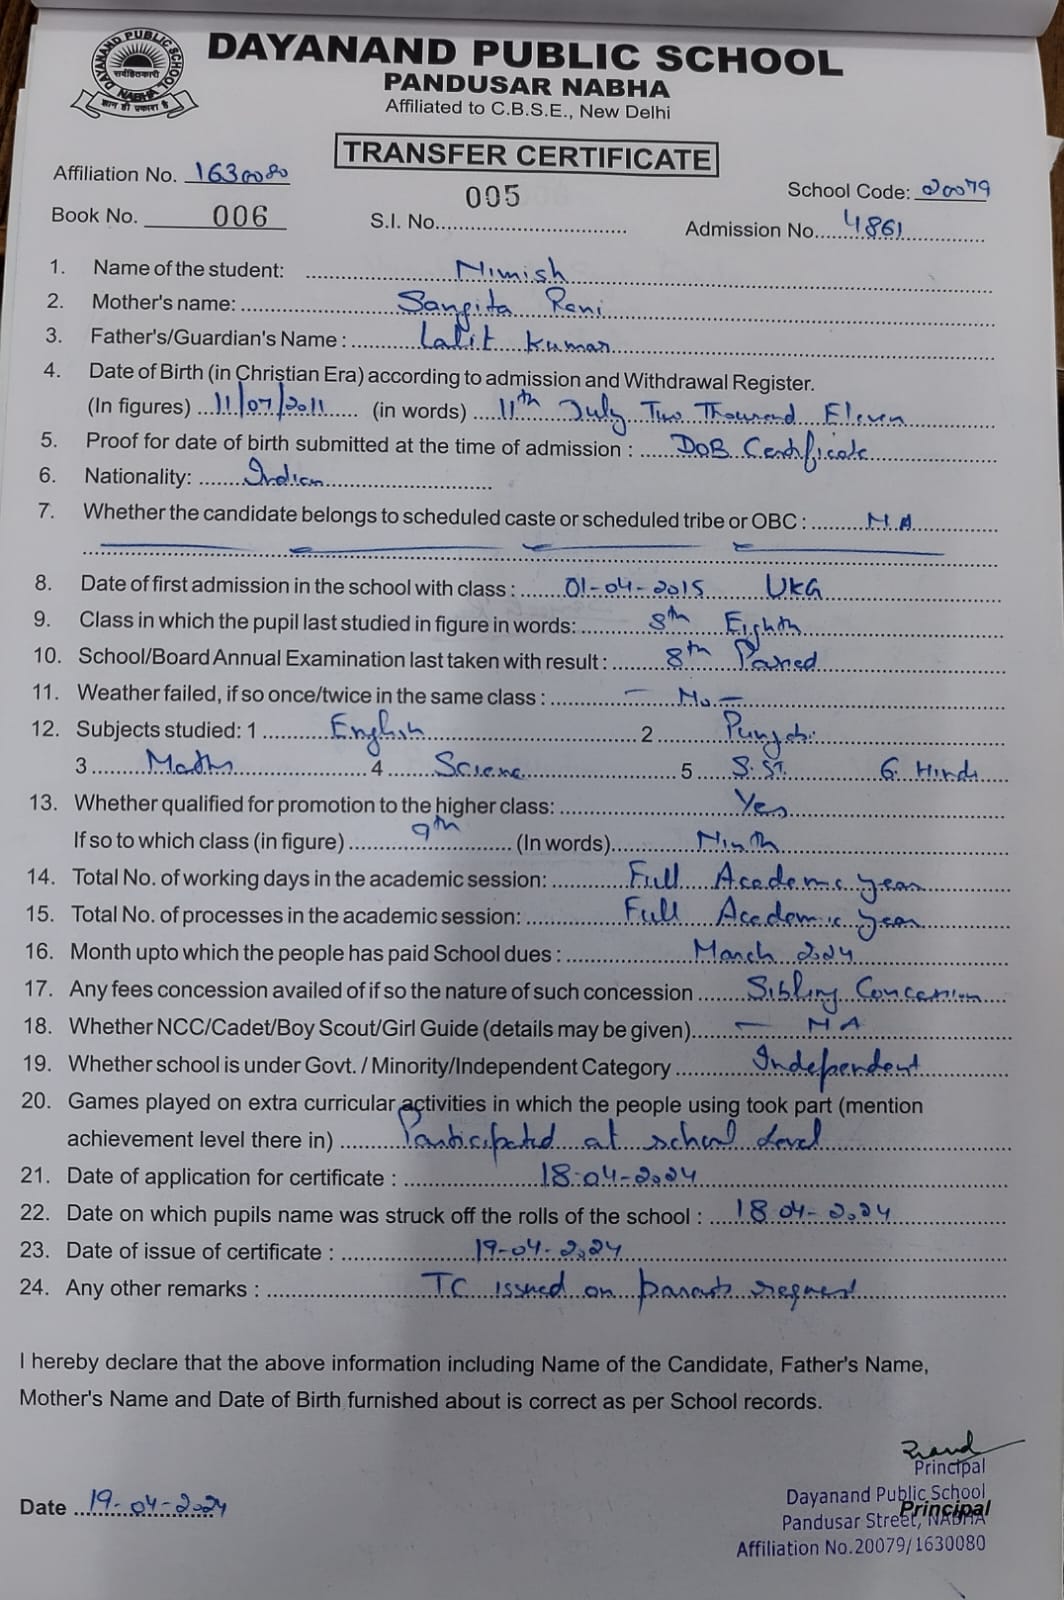 DAYANAND PUBLIC SCHOOL
NABHA
सर्वहितकारी
ज्ञान ही प्रकाश है
DAYANAND PUBLIC SCHOOL
PANDUSAR NABHA
Affiliated to C.B.S.E., New Delhi
TRANSFER CERTIFICATE
Affiliation No. 1630080
School Code: 20079
Book No. 006
S.I. No. 005
Admission No. 4861
1. Name of the student: Nimish
2. Mother's name: Sangita Rani
3. Father's/Guardian's Name : Lalit Kumar
4. Date of Birth (in Christian Era) according to admission and Withdrawal Register.
(In figures) 11/07/2011 (in words) 11th July Two Thousand Eleven
5. Proof for date of birth submitted at the time of admission : DOB Certificate
6. Nationality: Indian
7. Whether the candidate belongs to scheduled caste or scheduled tribe or OBC : N.A
8. Date of first admission in the school with class : 01-04-2015 UKG
9. Class in which the pupil last studied in figure in words: 8th Eighth
10. School/Board Annual Examination last taken with result : 8th Passed
11. Weather failed, if so once/twice in the same class : — No —
12. Subjects studied: 1 English 2 Punjabi
3 Maths 4 Science 5 S.ST. 6. Hindi
13. Whether qualified for promotion to the higher class: Yes
If so to which class (in figure) 9th (In words) Ninth
14. Total No. of working days in the academic session: Full Academic year
15. Total No. of processes in the academic session: Full Academic year
16. Month upto which the people has paid School dues : March 2024
17. Any fees concession availed of if so the nature of such concession Sibling Concession
18. Whether NCC/Cadet/Boy Scout/Girl Guide (details may be given) — NA
19. Whether school is under Govt. / Minority/Independent Category Independent
20. Games played on extra curricular activities in which the people using took part (mention
achievement level there in) Participated at school level
21. Date of application for certificate : 18-04-2024
22. Date on which pupils name was struck off the rolls of the school : 18-04-2024
23. Date of issue of certificate : 19-04-2024
24. Any other remarks : TC issued on parents request
I hereby declare that the above information including Name of the Candidate, Father's Name,
Mother's Name and Date of Birth furnished about is correct as per School records.
Principal
Dayanand Public School
Principal
Pandusar Street, NABHA
Affiliation No.20079/1630080
Date 19-04-2024